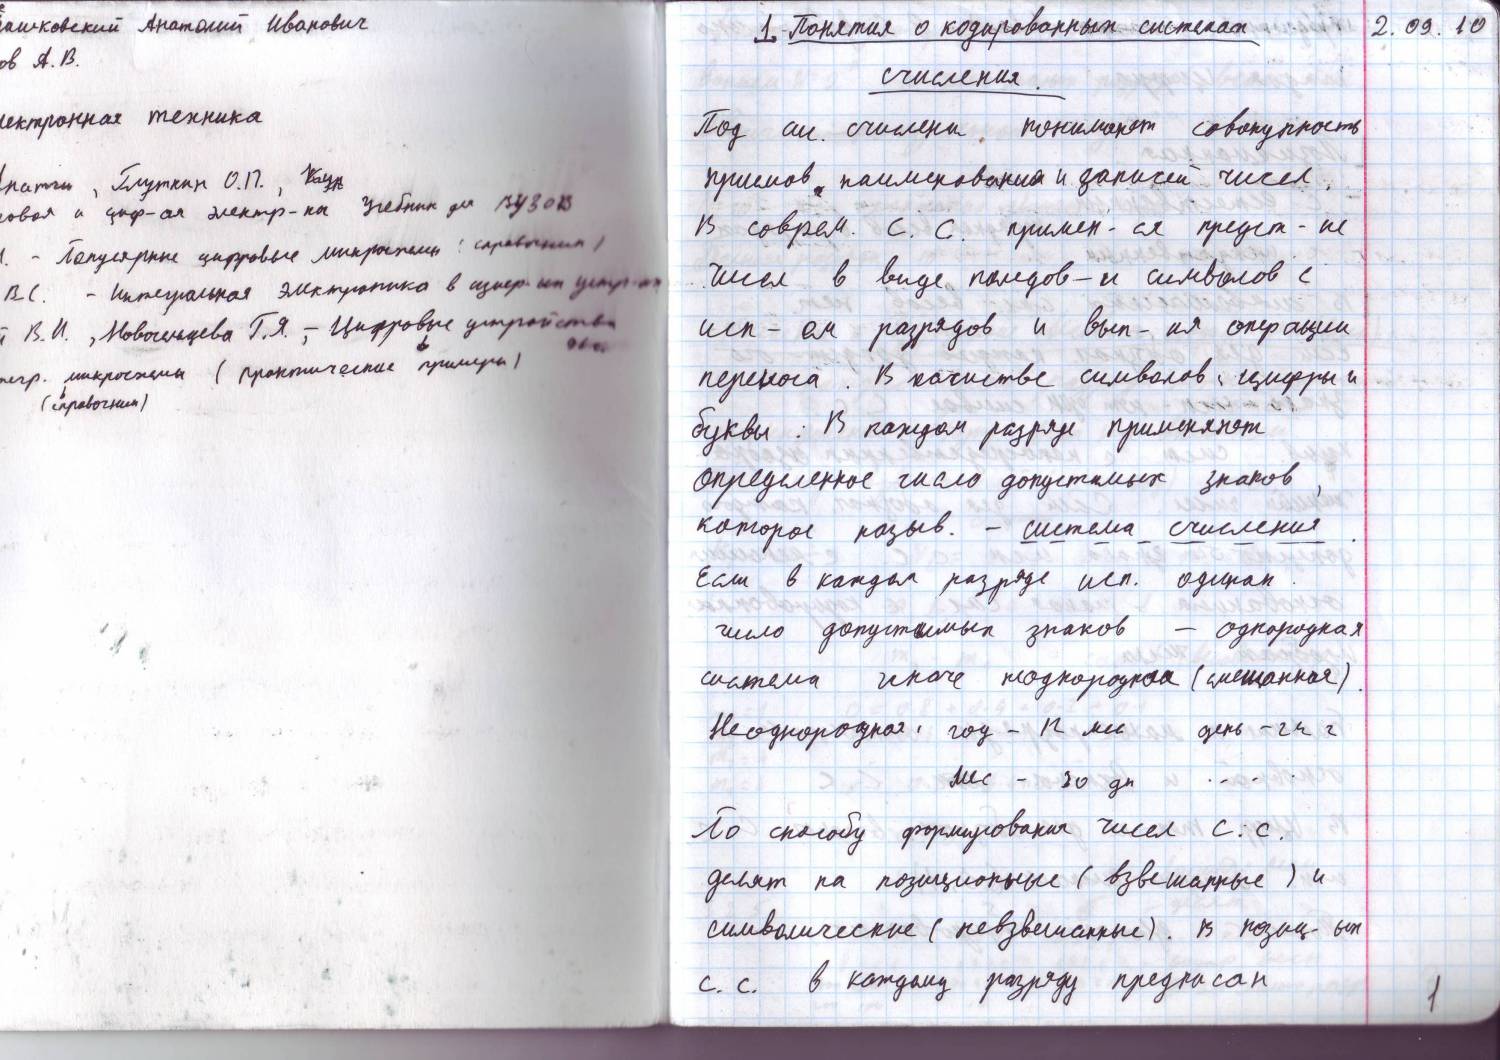 Анатолий Иванович
ов А.В.
лектронная техника
Глуткин О.П.,
овая и циф-ая электр-ка Учебник для ВУЗОВ
. - Популярные цифровые микросхемы: справочник)
В.С. - Интегральная электроника в измер-ых устр-ах
В.И., Новосельцева Г.Я., - Цифровые устройства
микросхемы (практические примеры)
(справочник)
1. Понятия о кодированных системах
счисления.
2.09.10
Под си. счислени понимают совокупность
приемов наименования и записей чисел.
В соврем. С.С. примен-ся предст-ие
чисел в виде последов-и символов с
исп-ем разрядов и вып-ия операции
переноса. В качистве символов: цифры и
буквы: В каждом разряде применяют
определенное число допустимых знаков,
которое назыв. - система счисления.
Если в каждом разряде исп. одинак.
число допустимых знаков - однородная
система иначе неоднородная (смешанная).
Неоднородная: год - 12 мес день - 24 г
мес - 30 дн .....
По способу формирования чисел С.С.
делят на позиционные (взвешанные) и
символические (невзвешанные). В позиц-ых
с.с. в каждому разряду предписан
1